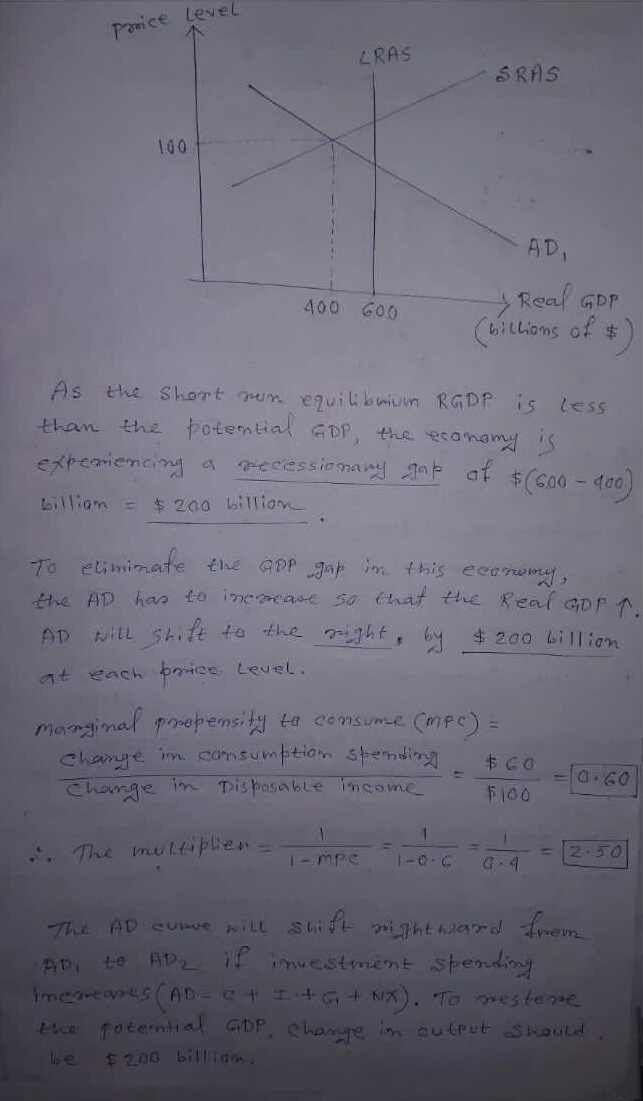 Price Level
LRAS
SRAS
100
AD1
400 600
Real GDP
(billions of $)
As the short run equilibrium RGDP is less
than the potential GDP, the economy is
experiencing a recessionary gap of $(600 - 400)
billion = $200 billion.
To eliminate the GDP gap in this economy,
the AD has to increase so that the Real GDP ↑.
AD will shift to the right, by $200 billion
at each price level.
Marginal propensity to consume (MPC) =
Change in consumption spending / Change in Disposable income = $60 / $100 = 0.60
∴ The multiplier = 1 / 1-MPC = 1 / 1-0.6 = 1 / 0.4 = 2.50
The AD curve will shift rightward from
AD1 to AD2 if investment spending
increases (AD = C + I + G + NX). To restore
the potential GDP, change in output should
be $200 billion.